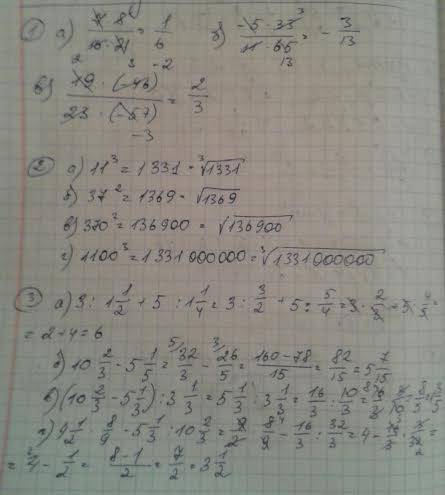 1) а) 4 · 8 / 16 · 21 = 1/6 б) -5 · 33 / 11 · 65 = - 3/13
в) 19 · (-46) / 23 · (-57) = 2/3
2) а) 11³ = 1331 = ∛1331
б) 37² = 1369 = √1369
в) 370² = 136900 = √136900
г) 1100³ = 1331000000 = ∛1331000000
3) а) 3 : 1 1/2 + 5 : 1 1/4 = 3 : 3/2 + 5 : 5/4 = 3 · 2/3 + 5 · 4/5 =
= 2+4 = 6
б) 10 2/3 - 5 1/5 = 32/3 - 26/5 = 160-78/15 = 82/15 = 5 7/15
в) (10 2/3 - 5 1/3) : 3 1/3 = 5 1/3 : 3 1/3 = 16/3 : 10/3 =
г) 4 1/2 · 8/9 - 5 1/3 : 10 2/3 = 8/9 - 16/3 : 32/3 = 4 -
= 4 - 1/2 = 8-1/2 = 7/2 = 3 1/2